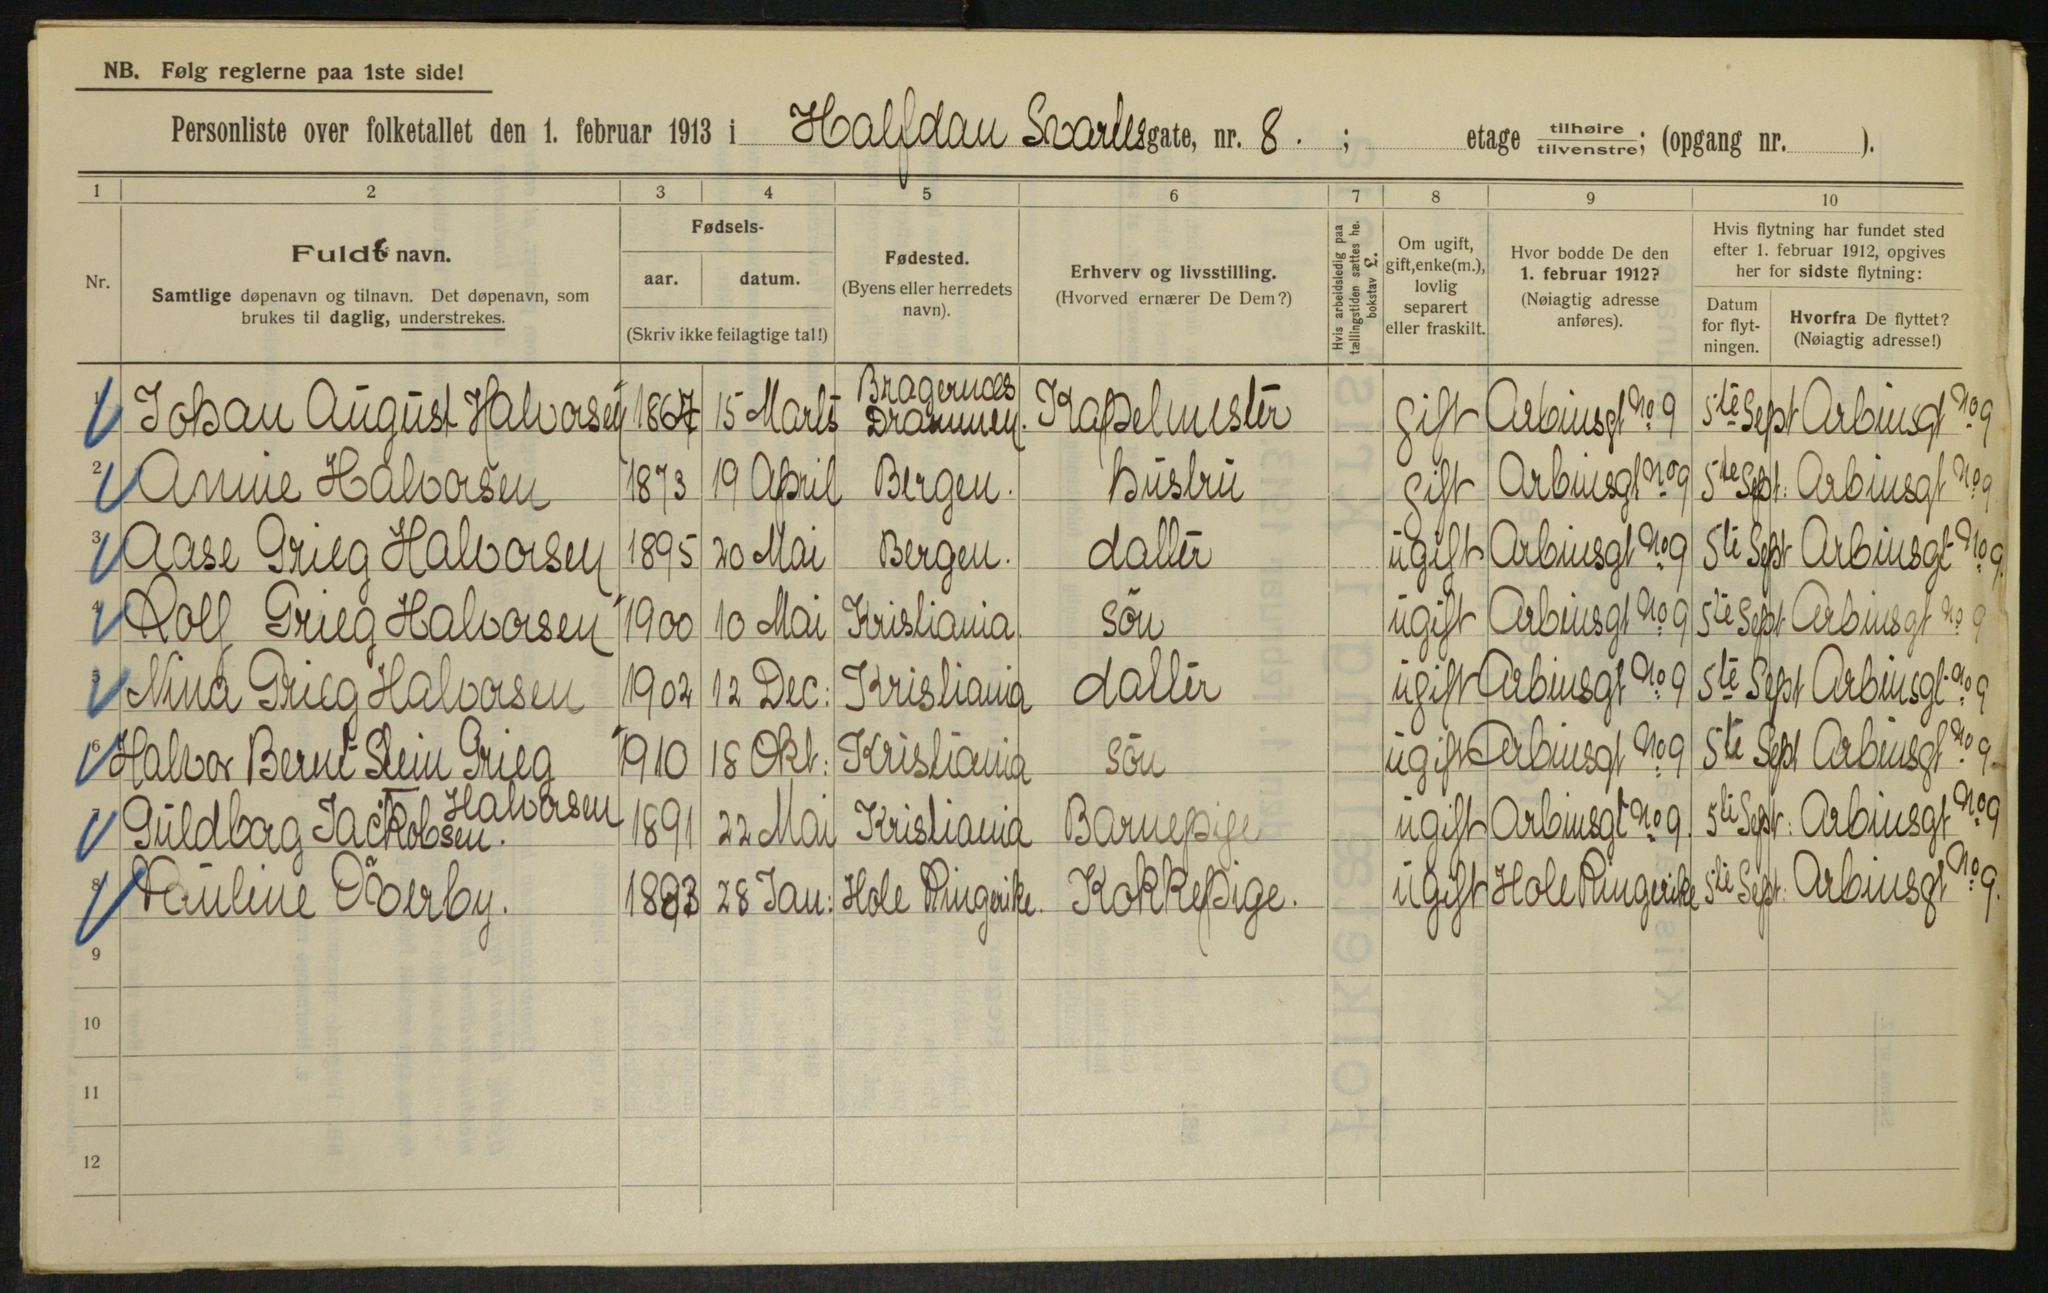 NB. Følg reglerne paa 1ste side!
Personliste over folketallet den 1. februar 1913 i Halfdan Svartes gate, nr. 8. ; etage tilhøire tilvenstre; (opgang nr. ).
1 2 3 4 5 6 7 8 9 10
Nr.
Fuldt navn.
Samtlige døpenavn og tilnavn. Det døpenavn, som
brukes til daglig, understrekes.
Fødsels-
aar. datum.
(Skriv ikke feilagtige tal!)
Fødested.
(Byens eller herredets
navn).
Erhverv og livsstilling.
(Hvorved ernærer De Dem?)
Hvis arbeidsledig paa
tællingstiden sættes he.
bokstav L.
Om ugift,
gift, enke(m.),
lovlig
separert
eller fraskilt.
Hvor bodde De den
1. februar 1912?
(Nøiagtig adresse
anføres).
Hvis flytning har fundet sted
efter 1. februar 1912, opgives
her for sidste flytning:
Datum
for flyt-
ningen.
Hvorfra De flyttet?
(Nøiagtig adresse!)
1 Johan August Halvorsen 1864 15 Marts Bragernæs Drammen. Kapelmester gift Arbinsgt No 9 5te Sept Arbinsgt No 9
2 Annie Halvorsen 1873 19 April Bergen. hustru gift Arbinsgt No 9 5te Sept: Arbinsgt No 9
3 Aase Grieg Halvorsen 1895 20 Mai Bergen. datter ugift Arbinsgt No 9 5te Sept Arbinsgt No 9.
4 Rolf Grieg Halvorsen 1900 10 Mai Kristiania. sön ugift Arbinsgt No 9 5te Sept Arbinsgt No 9
5 Nina Grieg Halvorsen 1902 12 Dec: Kristiania datter ugift Arbinsgt No 9 5te Sept Arbinsgt No 9
6 Halvor Bernt Stein Grieg Halvorsen 1910 18 Okt: Kristiania sön ugift Arbinsgt No 9 5te Sept Arbinsgt No 9.
7 Guldborg Jackobsen. 1891 22 Mai Kristiania Barnepige ugift Arbinsgt No 9. 5te Sept: Arbinsgt No 9
8 Pauline Överby. 1893 28 Jan: Hole Ringerike. Kokkepige. ugift Hole Ringerike 5te Sept: Arbinsgt No 9.
9
10
11
12